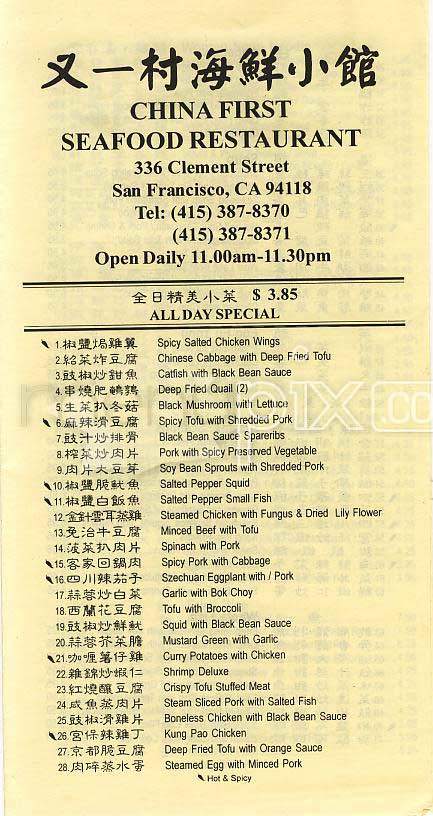 又一村海鮮小館
CHINA FIRST
SEAFOOD RESTAURANT
336 Clement Street
San Francisco, CA 94118
Tel: (415) 387-8370
(415) 387-8371
Open Daily 11.00am-11.30pm
全日精美小菜 $ 3.85
ALL DAY SPECIAL
1. 椒鹽焗雞翼 Spicy Salted Chicken Wings
2. 紹菜炸豆腐 Chinese Cabbage with Deep Fried Tofu
3. 豉椒炒甜魚 Catfish with Black Bean Sauce
4. 串燒肥鵪鶉 Deep Fried Quail (2)
5. 生菜扒冬菇 Black Mushroom with Lettuce
6. 麻辣滑豆腐 Spicy Tofu with Shredded Pork
7. 豉汁炒排骨 Black Bean Sauce Spareribs
8. 榨菜炒肉片 Pork with Spicy Preserved Vegetable
9. 肉片大豆芽 Soy Bean Sprouts with Shredded Pork
10. 椒鹽脆魷魚 Salted Pepper Squid
11. 椒鹽白飯魚 Salted Pepper Small Fish
12. 金針雲耳蒸雞 Steamed Chicken with Fungus & Dried Lily Flower
13. 免治牛豆腐 Minced Beef with Tofu
14. 菠菜扒肉片 Spinach with Pork
15. 客家回鍋肉 Spicy Pork with Cabbage
16. 四川辣茄子 Szechuan Eggplant with / Pork
17. 蒜蓉炒白菜 Garlic with Bok Choy
18. 西蘭花豆腐 Tofu with Broccoli
19. 豉椒炒鮮魷 Squid with Black Bean Sauce
20. 蒜蓉芥菜膽 Mustard Green with Garlic
21. 咖喱薯仔雞 Curry Potatoes with Chicken
22. 雜錦炒蝦仁 Shrimp Deluxe
23. 紅燒釀豆腐 Crispy Tofu Stuffed Meat
24. 咸魚蒸肉片 Steam Sliced Pork with Salted Fish
25. 豉椒滑雞片 Boneless Chicken with Black Bean Sauce
26. 宮保辣雞丁 Kung Pao Chicken
27. 京都脆豆腐 Deep Fried Tofu with Orange Sauce
28. 肉碎蒸水蛋 Steamed Egg with Minced Pork
Hot & Spicy